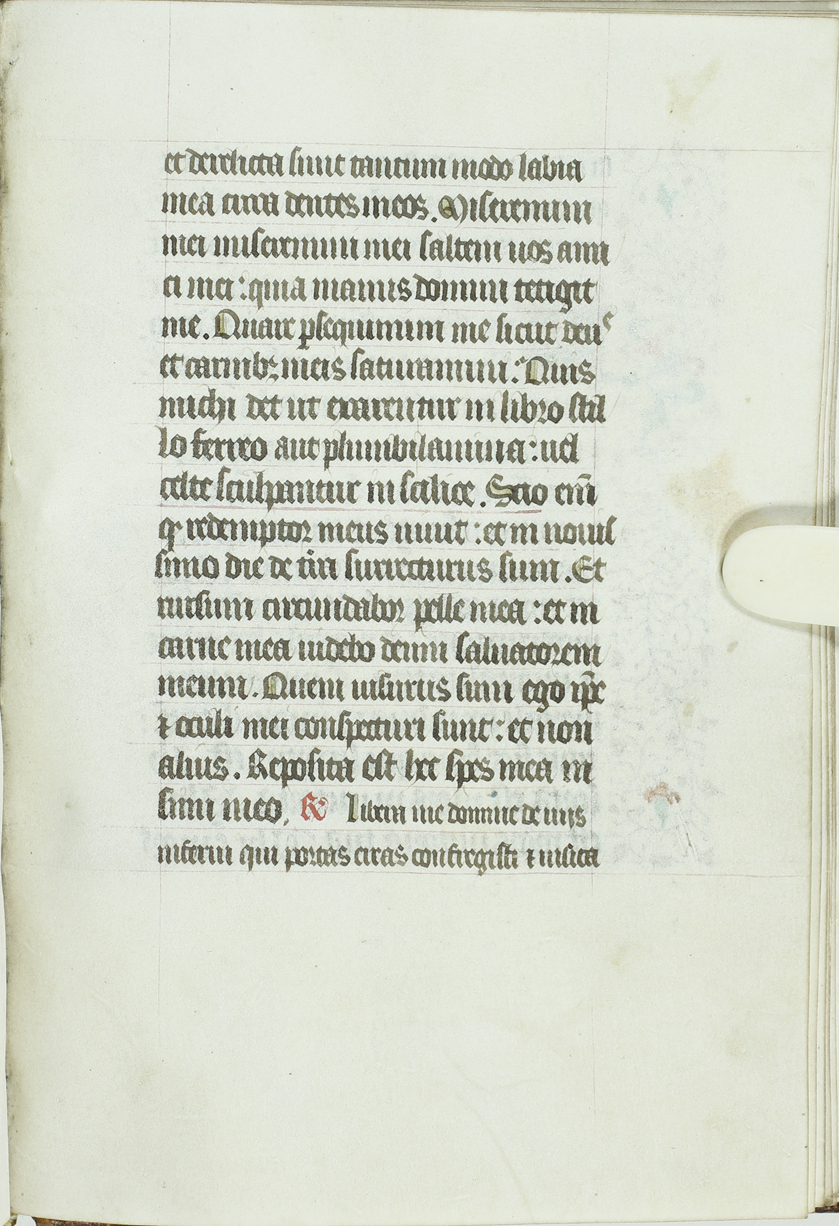 et derelicta sunt tantum modo labia
mea circa dentes meos. Miseremini
mei miseremini mei saltem uos ami
ci mei : quia manus domini tetigit
me. Quare ꝑsequimini me sicut deus
et carnibꝫ meis saturamini : Quis
michi det ut exarentur in libro stil
lo ferreo aut plumbi lamina : uel
celte sculpantur in scilice. Scio eni̅
ꝙ redemptor meus uiuit : et in nouis
simo die de t̅ra surrecturus sum. Et
rursum circundabor pelle mea : et in
carne mea uidebo deum saluatorem
meum. Quem uisurus sum ego ip̅e
⁊ oculi mei conspecturi sunt : et non
alius. Reposita est hec spes mea in
sinu meo. ℟ Libera me domine de uiis
inferni qui portas ereas confregisti ⁊ uisita